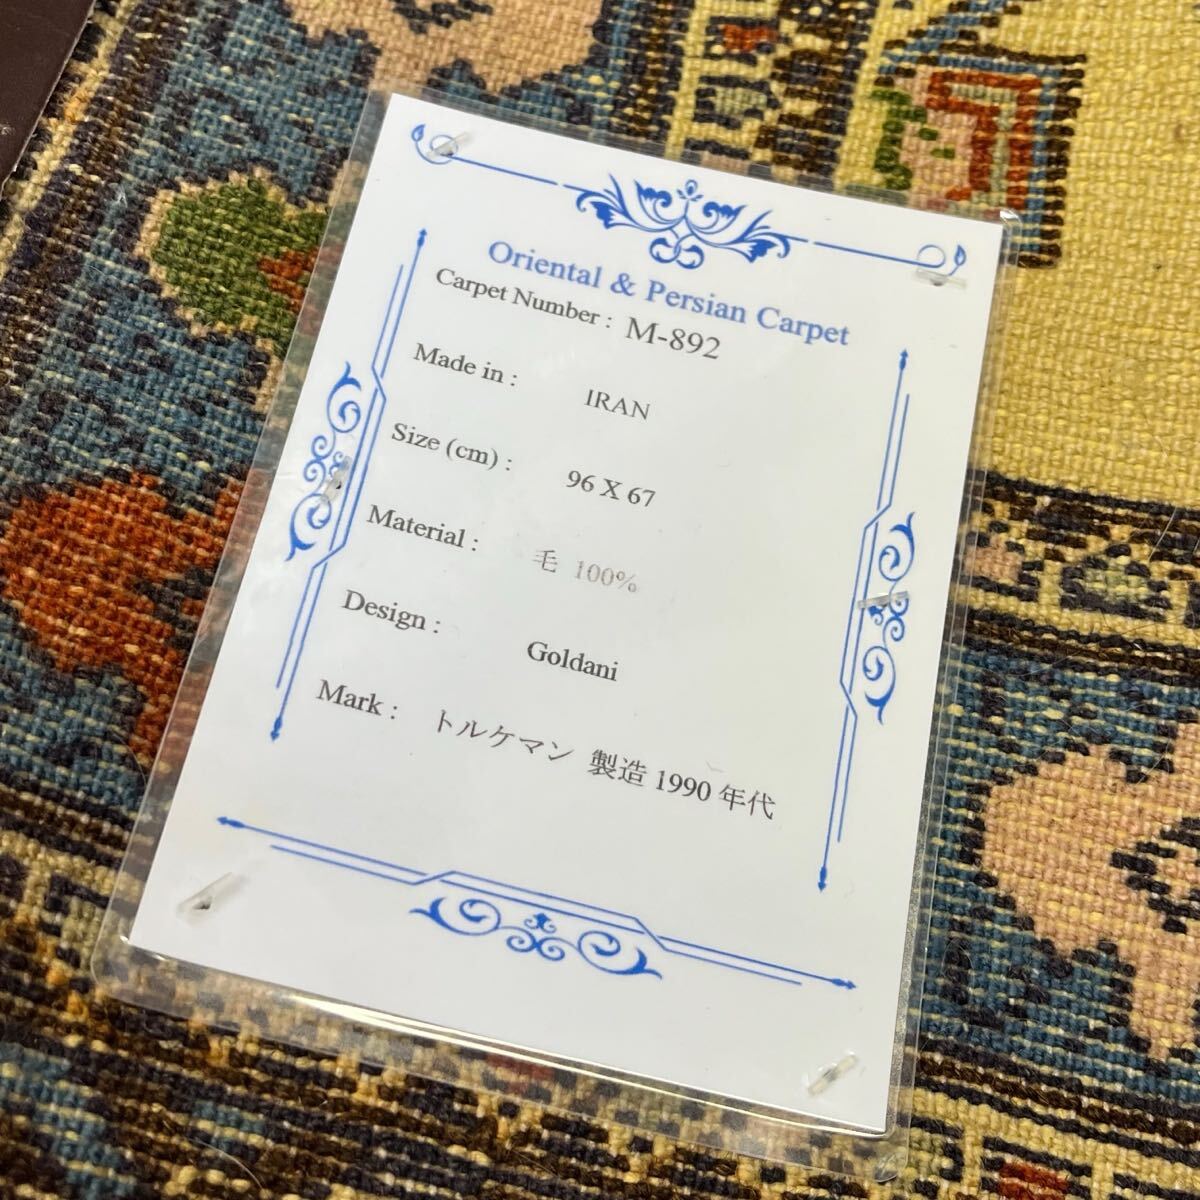 Oriental & Persian Carpet
Carpet Number : M-892
Made in : IRAN
Size (cm) : 96 X 67
Material : 毛 100%
Design : Goldani
Mark : トルケマン 製造 1990 年代